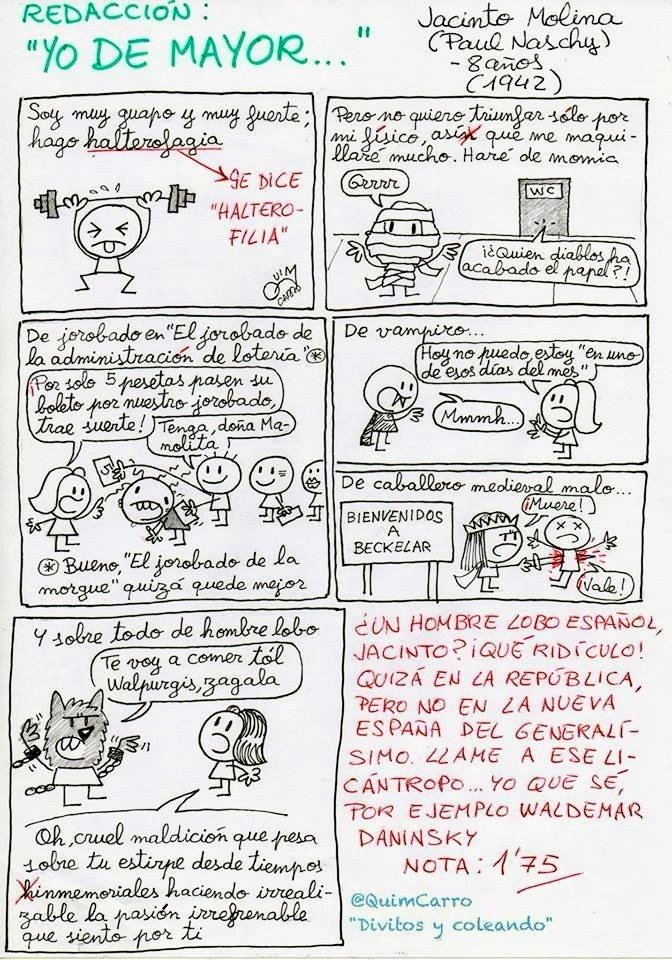 REDACCIÓN:
"YO DE MAYOR..."
Jacinto Molina
(Paul Naschy)
- 8 años
(1942)
Soy muy guapo y muy fuerte;
hago halterofagia
SE DICE
"HALTERO-
FILIA"
QUIM
CARRO
Pero no quiero triunfar sólo por
mi físico, asín que me maqui-
llaré mucho. Haré de momia
Grrrr
WC
¡¿Quien diablos ha
acabado el papel?!
De jorobado en "El jorobado de
la administración de lotería" *
¡Por solo 5 pesetas pasen su
boleto por nuestro jorobado,
trae suerte!
Tenga, doña Ma-
nolita
5
* Bueno, "El jorobado de la
morgue" quizá quede mejor
De vampiro...
Hoy no puedo, estoy "en uno
de esos días del mes"
Mmmh...
De caballero medieval malo...
BIENVENIDOS
A
BECKELAR
¡Muere!
¡Vale!
Y sobre todo de hombre lobo
Te voy a comer tól
Walpurgis, zagala
Oh, cruel maldición que pesa
sobre tu estirpe desde tiempos
hinmemoriales haciendo irreali-
zable la pasión irrefrenable
que siento por ti
¿UN HOMBRE LOBO ESPAÑOL,
JACINTO? ¡QUÉ RIDÍCULO!
QUIZÁ EN LA REPÚBLICA,
PERO NO EN LA NUEVA
ESPAÑA DEL GENERALÍ-
SIMO. LLAME A ESE LI-
CÁNTROPO... YO QUE SÉ,
POR EJEMPLO WALDEMAR
DANINSKY
NOTA: 1'75
@QuimCarro
"Divitos y coleando"